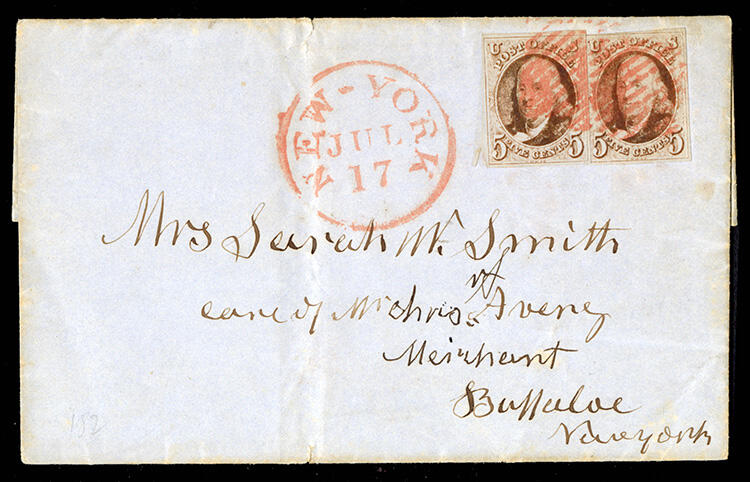 U S U S
POST OFFICE POST OFFICE
5 FIVE CENTS 5 5 FIVE CENTS 5
NEW-YORK
JUL
17
Mrs Sarah W. Smith
care of Mr Chris. Avery
Merchant
Buffaloe
New york
152